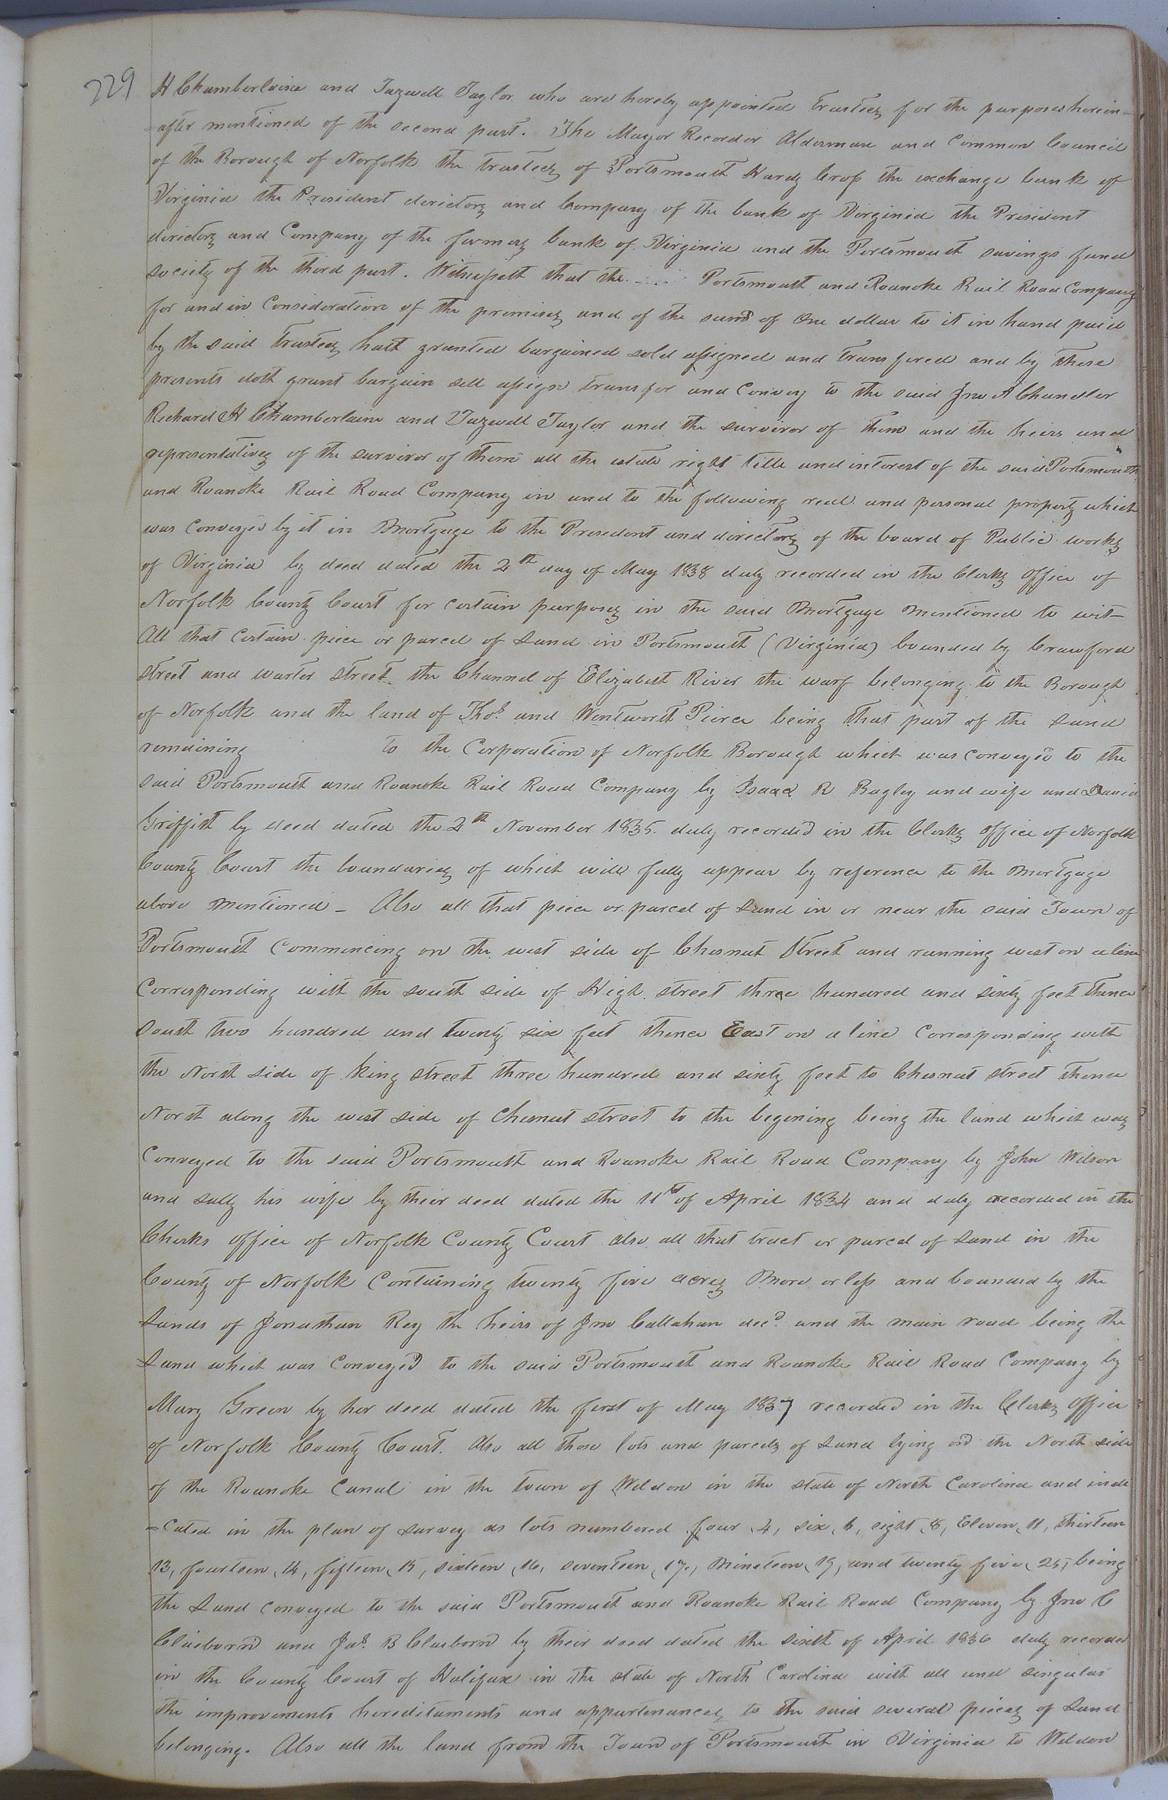 229
H Chamberlaine and Tazwell Taylor who are hereby appointed trustees for the purposes herein-
after mentioned of the second part. The Mayor Recorder Alderman and Common Council
of the Borough of Norfolk the trustees of Portsmouth Hardy Cross the exchange bank of
Virginia the President directors and Company of the bank of Virginia the President
directors and Company of the farmers bank of Virginia and the Portsmouth savings fund
society of the third part. Witnesseth that the ..... Portsmouth and Roanoke Rail Road Company
for and in Consideration of the premises and of the sum of One dollar to it in hand paid
by the said trustees hath granted bargained sold assigned and transfered and by these
presents doth grant bargain sell assign transfer and Convey to the said Jno A Chandler
Richard H Chamberlaine and Tazwell Taylor and the survivor of them and the heirs and
representatives of the survivor of them all the estate right title and interest of the said Portsmouth
and Roanoke Rail Road Company in and to the following real and personal property which
was conveyed by it in Mortgage to the President and directors of the board of Public works
of Virginia by deed dated the 2th day of May 1838 duly recorded in the Clerks Office of
Norfolk County Court for certain purposes in the said Mortgage Mentioned to wit-
All that certain piece or parcel of Land in Portsmouth (Virginia) bounded by Crawford
street and warter street the Channel of Elizabeth River the warf belonging to the Borough
of Norfolk and the land of Thos and Wentworth Pierce being that part of the Land
remaining to the Corporation of Norfolk Borough which was conveyed to the
said Portsmouth and Roanoke Rail Road Company by Isaac R Bagley and wife and David
Griffith by deed dated the 2th November 1835 duly recorded in the Clerks Office of Norfolk
County Court the boundaries of which will fully appear by reference to the Mortgage
above Mentioned - Also all that piece or parcel of Land in or near the said Town of
Portsmouth Commencing on the west side of Chesnut Street and running west on a line
Corresponding with the south side of High street three hundred and sixty feet thence
South two hundred and twenty six feet thence East on a line Corresponding with
the North side of King street three hundred and sixty feet to Chesnut street thence
North along the west side of Chesnut street to the begining being the land which was
Conveyed to the said Portsmouth and Roanoke Rail Road Company by John Wilson
and Sally his wife by their deed dated the 11th of April 1834 and duly recorded in the
Clerks Office of Norfolk County Court also all that tract or parcel of Land in the
County of Norfolk Containing twenty five acres More or less and bounded by the
Lands of Jonathan Rey the heirs of Jno Callahan decd and the main road being the
Land which was Conveyed to the said Portsmouth and Roanoke Rail Road Company by
Mary Green by her deed dated the first of May 1837 recorded in the Clerks Office
of Norfolk County Court. Also all those lots and parcels of Land lying on the North side
of the Roanoke Canal in the town of Weldon in the state of North Carolina and indi
-cated in the plan of survey as lots numbered four, 4, six, 6, eight, 8, Eleven, 11, thirteen
13, fourteen, 14, fifteen, 15, sixteen, 16, seventeen, 17, Nineteen, 19, and twenty five, 25, being
the Land conveyed to the said Portsmouth and Roanoke Rail Road Company by Jno C
Claiborn and Jas B Claiborn by their deed dated the sixth of April 1836 duly recorded
in the County Court of Halifax in the state of North Carolina with all and singular
the improvements hereditaments and appurtenances to the said several pieces of Land
belonging. Also all the land from the Town of Portsmouth in Virginia to Weldon